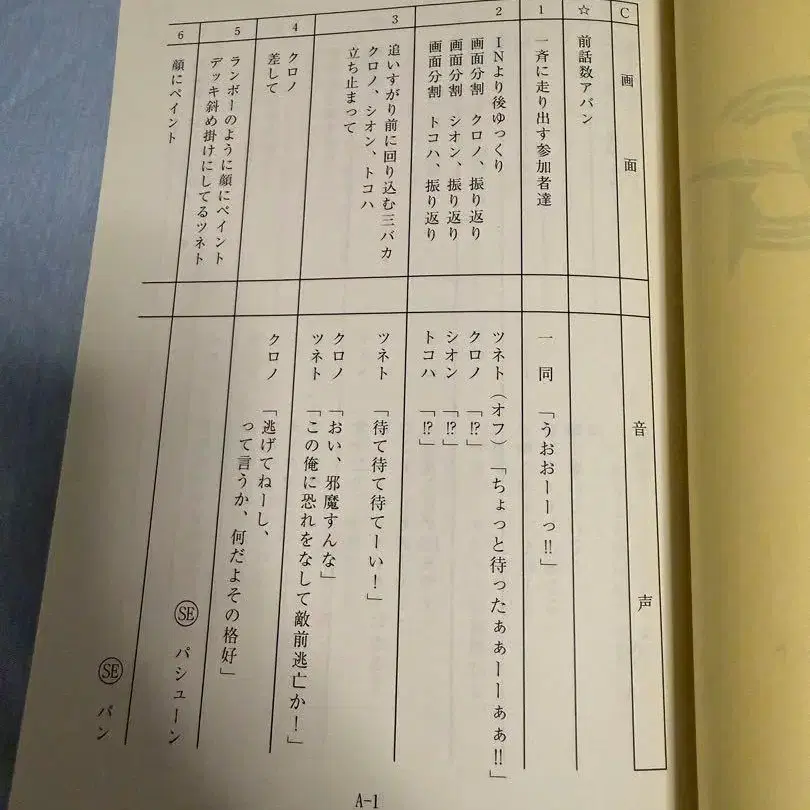 C
画面
音声
☆
前話数アバン
1
一斉に走り出す参加者達
一同 「うおおーーっ!!」
2
INより後ゆっくり
画面分割 クロノ、振り返り
画面分割 シオン、振り返り
画面分割 トコハ、振り返り
ツネト(オフ) 「ちょっと待ったぁぁーーぁぁ!!」
クロノ 「!?」
シオン 「!?」
トコハ 「!?」
3
追いすがり前に回り込む三バカ
クロノ、シオン、トコハ
立ち止まって
ツネト 「待て待て待てーい!」
クロノ 「おい、邪魔すんな」
ツネト 「この俺に恐れをなして敵前逃亡か!」
4
クロノ
差して
クロノ 「逃げてねーし、
って言うか、何だよその格好」
5
ランボーのように顔にペイント
デッキ斜め掛けにしてるツネト
SE パシューン
6
顔にペイント
SE バン
A-1